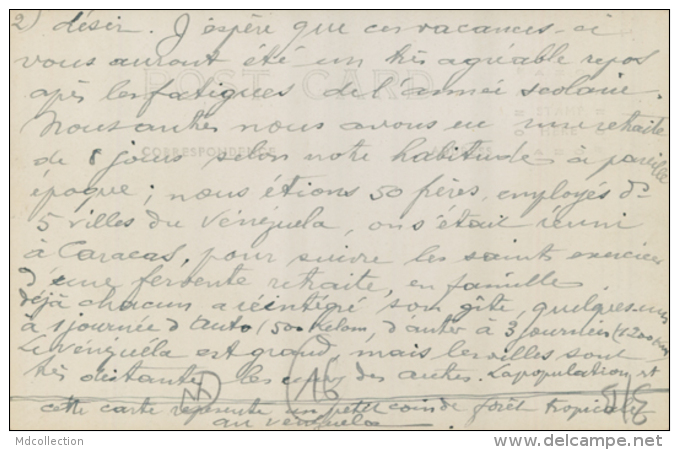 2) désir. J'espère que ces vacances-ci
vous auront été un très agréable repos
après les fatigues de l'année scolaire.
POST CARD
Nous autres nous avons eu une retraite
de 8 jours selon notre habitude à pareille
CORRESPONDENCE
époque ; nous étions 50 frères, employés ds
5 villes du Vénézuela, on s'était réuni
à Caracas, pour suivre les saints exercices
d'une fervente retraite, en famille.
déjà chacun a réintégré son gîte, quelques-uns
à 1 journée d'auto (500 kilom, d'autres à 3 journées (1200 km
Le Vénézuéla est grand, mais les villes sont
très distantes les unes des autres. La population est
16
cette carte représente un petit coin de forêt tropicale
au Vénézuela
Mdcollection
www.delcampe.net